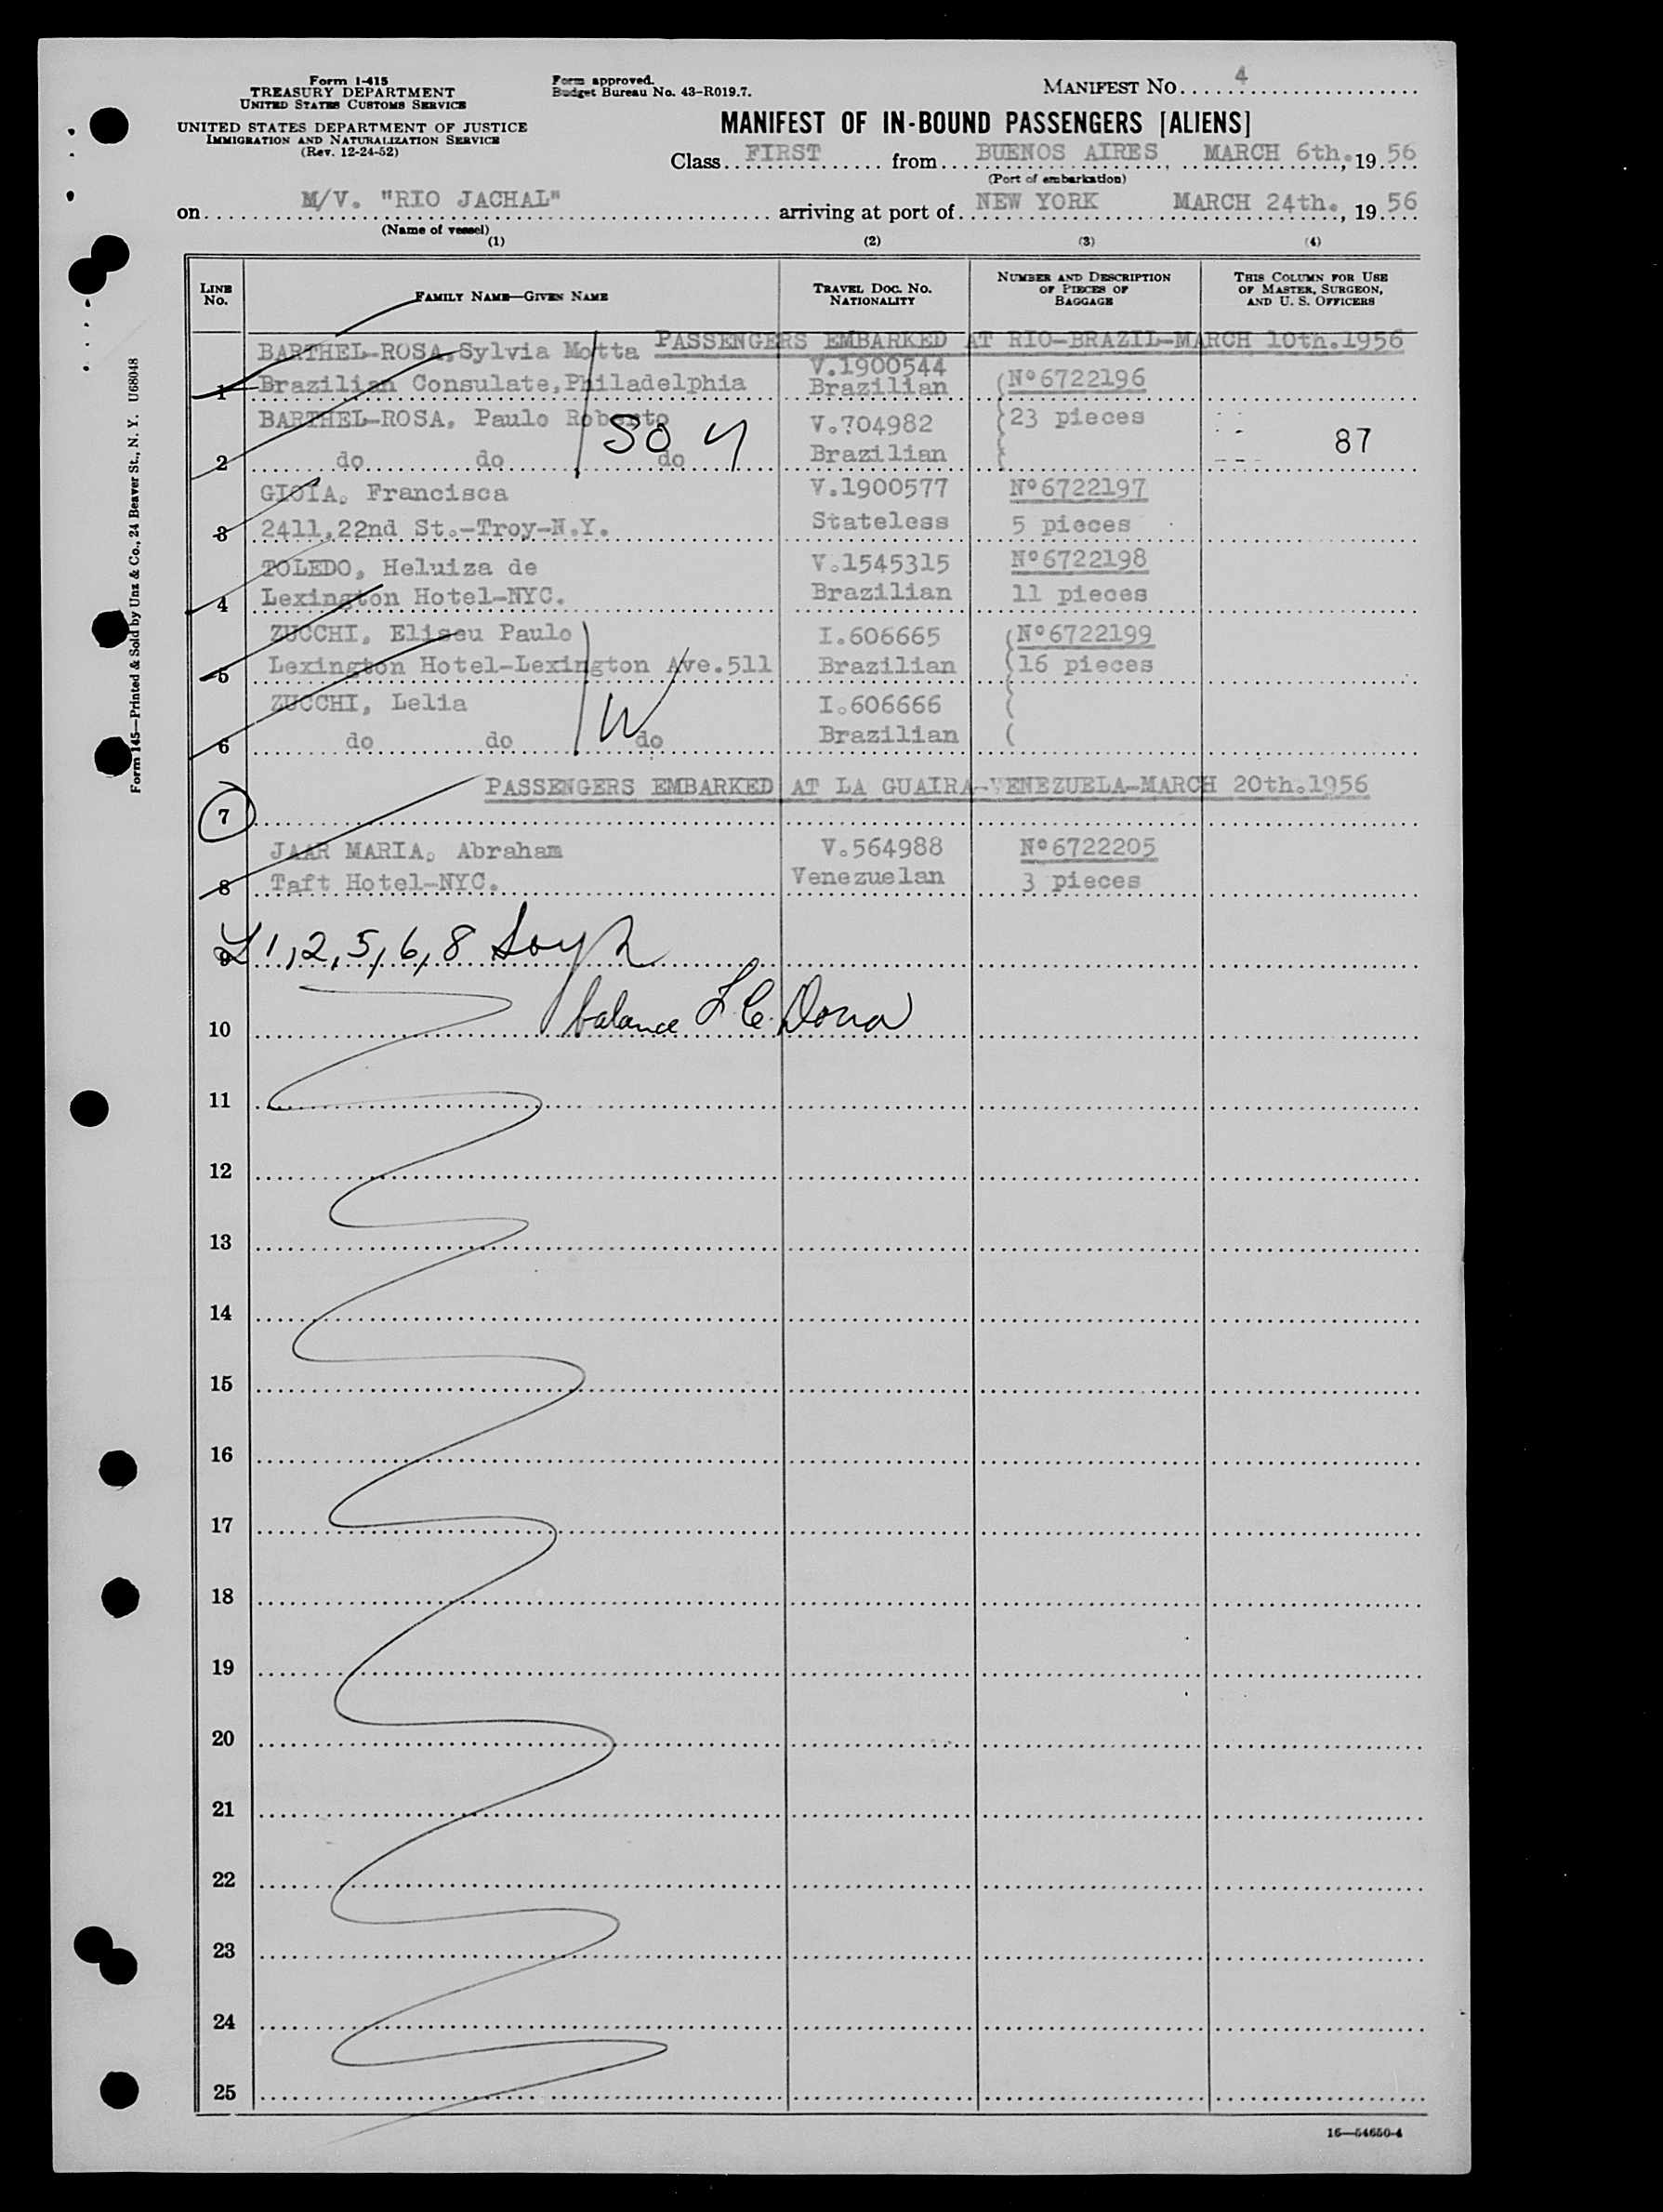 Form I-415
TREASURY DEPARTMENT
UNITED STATES CUSTOMS SERVICE
UNITED STATES DEPARTMENT OF JUSTICE
IMMIGRATION AND NATURALIZATION SERVICE
(Rev. 12-24-52)
Form approved.
Budget Bureau No. 43-R019.7.
MANIFEST No. 4
MANIFEST OF IN-BOUND PASSENGERS [ALIENS]
Class FIRST from BUENOS AIRES, MARCH 6th., 19 56
(Port of embarkation)
on M/V. "RIO JACHAL" arriving at port of NEW YORK MARCH 24th., 19 56
(Name of vessel)
(1) (2) (3) (4)
LINE No.
FAMILY NAME—GIVEN NAME
TRAVEL DOC. NO. NATIONALITY
NUMBER AND DESCRIPTION OF PIECES OF BAGGAGE
THIS COLUMN FOR USE OF MASTER, SURGEON, AND U. S. OFFICERS
PASSENGERS EMBARKED AT RIO-BRAZIL-MARCH 10th.1956
BARTHEL-ROSA, Sylvia Motta V.1900544
1 Brazilian Consulate, Philadelphia Brazilian (Nº6722196
BARTHEL-ROSA, Paulo Roberto V.704982 (23 pieces
2 do do do Brazilian ( 87
GIOIA, Francisca V.1900577 Nº6722197
3 2411,22nd St.-Troy-N.Y. Stateless 5 pieces
TOLEDO, Heluiza de V.1545315 Nº6722198
4 Lexington Hotel-NYC. Brazilian 11 pieces
ZUCCHI, Eliseu Paulo I.606665 (Nº6722199
5 Lexington Hotel-Lexington Ave.511 Brazilian (16 pieces
ZUCCHI, Lelia I.606666 (
6 do do do Brazilian (
PASSENGERS EMBARKED AT LA GUAIRA-VENEZUELA-MARCH 20th.1956
7
JAAR MARIA, Abraham V.564988 Nº6722205
8 Taft Hotel-NYC. Venezuelan 3 pieces
9 1,2,5,6,8
10 balance
11
12
13
14
15
16
17
18
19
20
21
22
23
24
25
16—54650-4
Form 145—Printed & Sold by Unz & Co., 24 Beaver St., N. Y. U68048